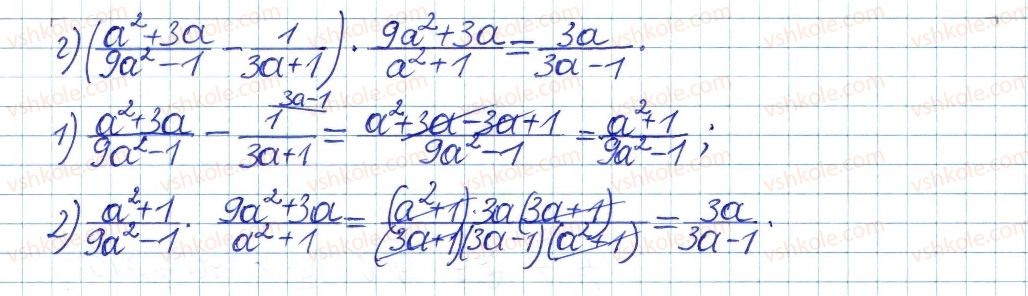 г) (a²+3a/9a²-1 - 1/3a+1) · 9a²+3a/a²+1 = 3a/3a-1.
1) a²+3a/9a²-1 - 1^{3a-1}/3a+1 = a²+3a-3a+1/9a²-1 = a²+1/9a²-1;
2) a²+1/9a²-1 · 9a²+3a/a²+1 = (a²+1)·3a(3a+1)/(3a+1)(3a-1)(a²+1) = 3a/3a-1.